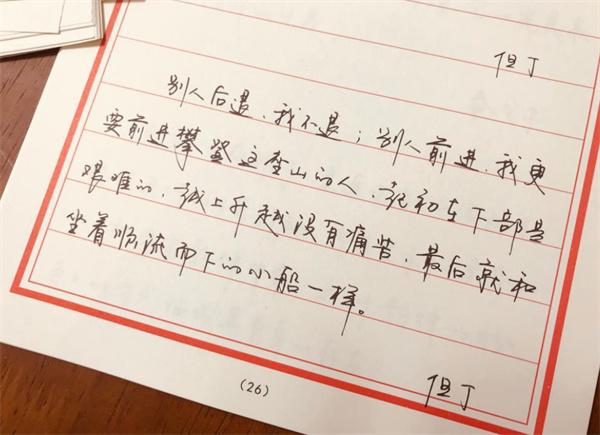 但丁
别人后退、我不退；别人前进、我更
要前进攀登这座山的人、起初在下部是
艰难的，越上升越没有痛苦，最后就和
坐着顺流而下的小船一样。
但丁
(26)